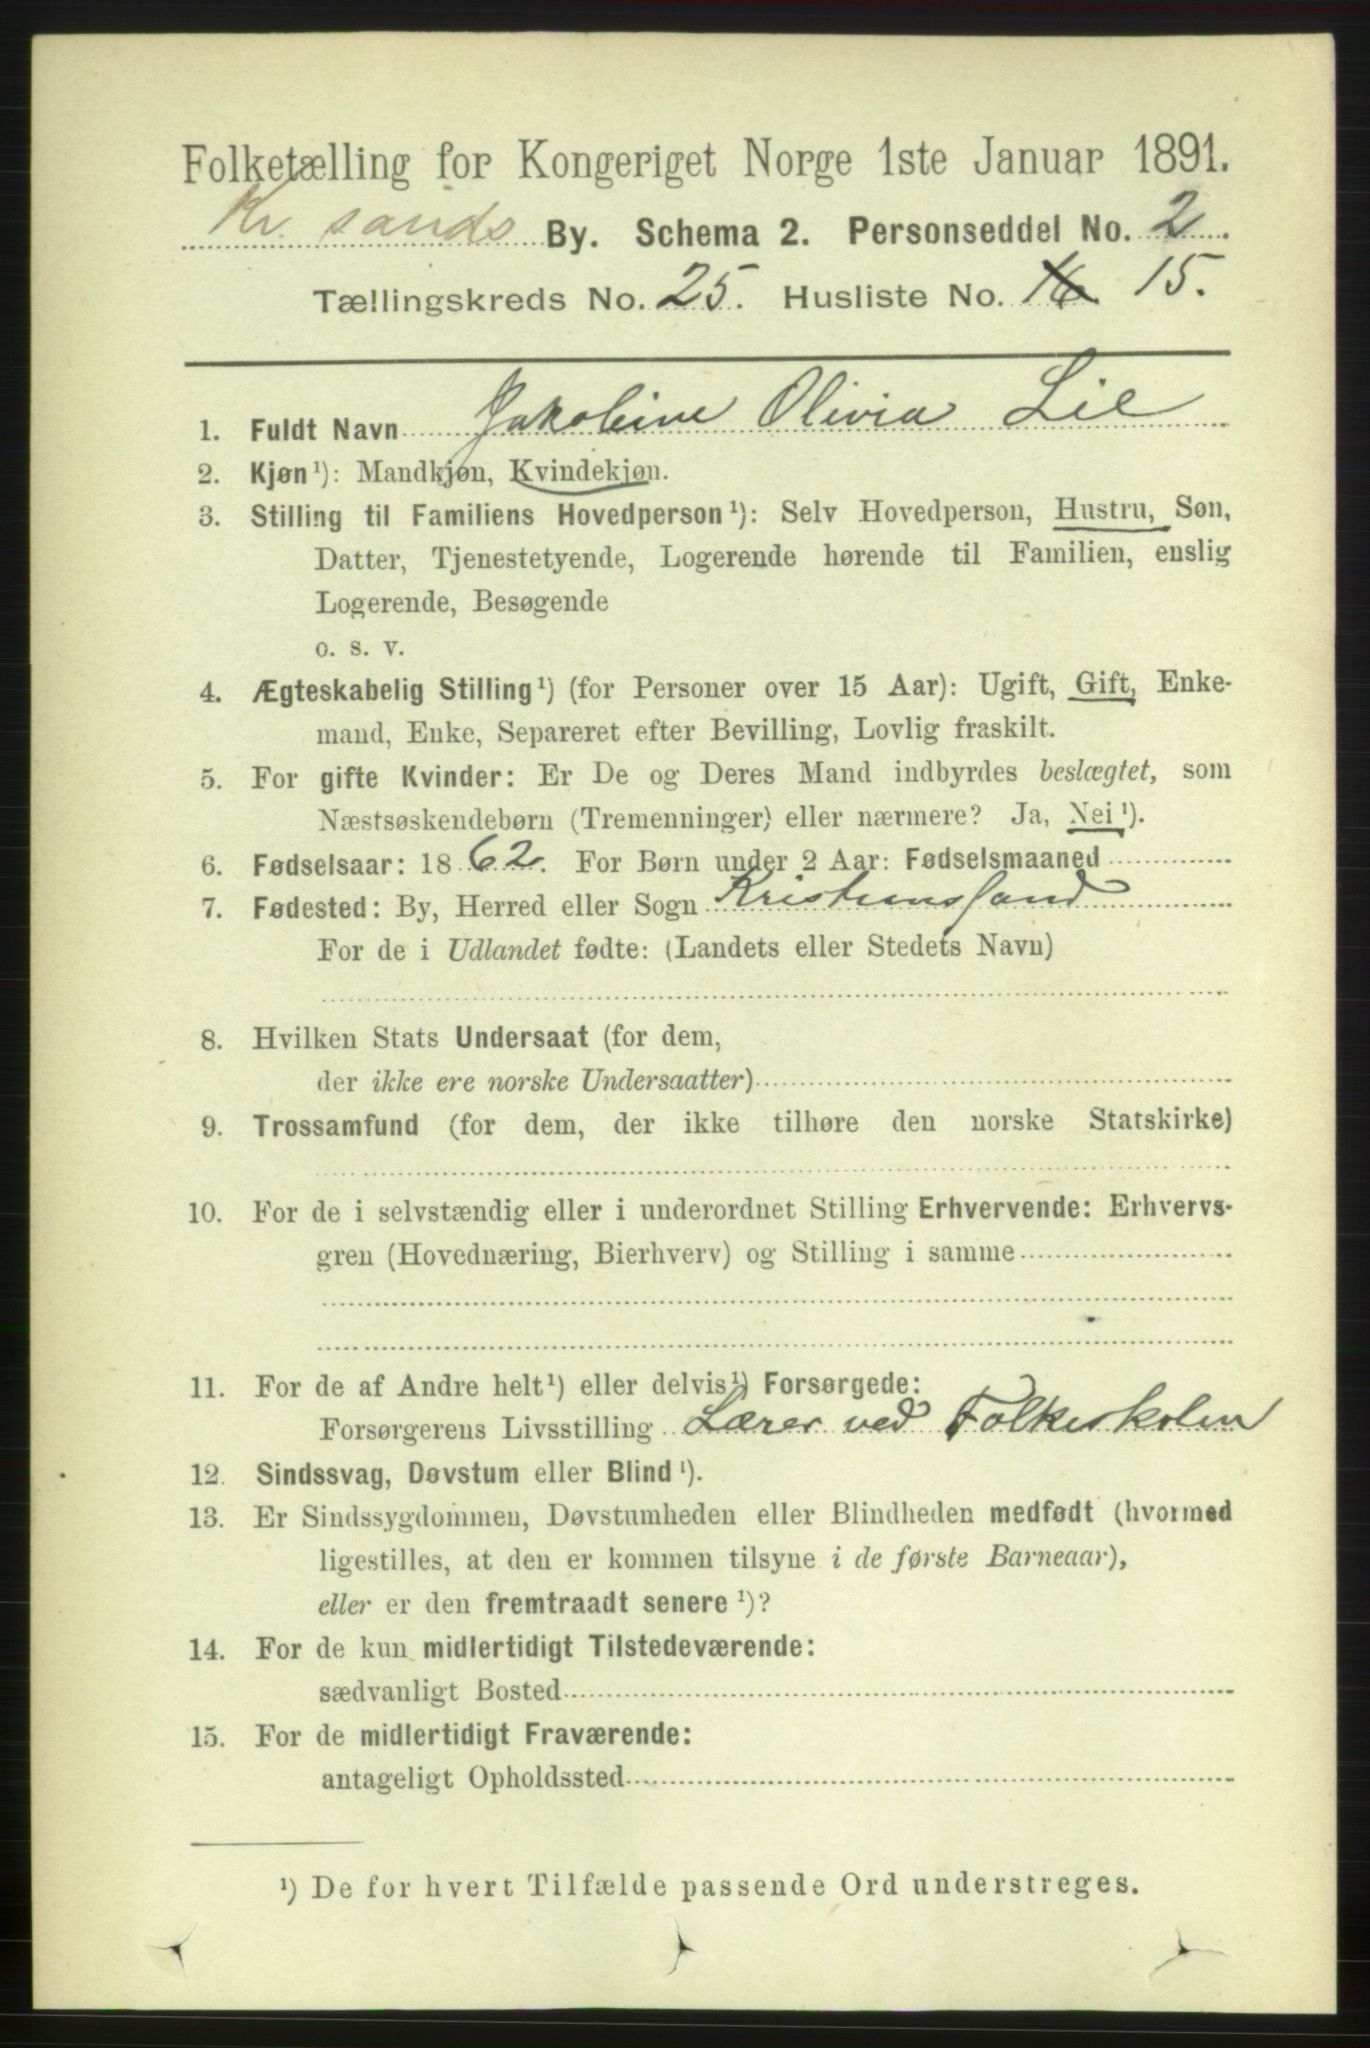 Folketælling for Kongeriget Norge 1ste Januar 1891.
Kr. sands By. Schema 2. Personseddel No. 2.
Tællingskreds No. 25. Husliste No. 16 15.
1. Fuldt Navn Jakobine Olivia Lie
2. Kjøn¹): Mandkjøn, Kvindekjøn.
3. Stilling til Familiens Hovedperson¹): Selv Hovedperson, Hustru, Søn,
Datter, Tjenestetyende, Logerende hørende til Familien, enslig
Logerende, Besøgende
o. s. v.
4. Ægteskabelig Stilling¹) (for Personer over 15 Aar): Ugift, Gift, Enke-
mand, Enke, Separeret efter Bevilling, Lovlig fraskilt.
5. For gifte Kvinder: Er De og Deres Mand indbyrdes beslægtet, som
Næstsøskendebørn (Tremenninger) eller nærmere? Ja, Nei¹).
6. Fødselsaar: 1862. For Børn under 2 Aar: Fødselsmaaned
7. Fødested: By, Herred eller Sogn Kristianssand
For de i Udlandet fødte: (Landets eller Stedets Navn)
8. Hvilken Stats Undersaat (for dem,
der ikke ere norske Undersaatter)
9. Trossamfund (for dem, der ikke tilhøre den norske Statskirke)
10. For de i selvstændig eller i underordnet Stilling Erhvervende: Erhvervs-
gren (Hovednæring, Bierhverv) og Stilling i samme
11. For de af Andre helt¹) eller delvis¹) Forsørgede:
Forsørgerens Livsstilling Lærer ved Folkeskolen
12. Sindssvag, Døvstum eller Blind¹).
13. Er Sindssygdommen, Døvstumheden eller Blindheden medfødt (hvormed
ligestilles, at den er kommen tilsyne i de første Barneaar),
eller er den fremtraadt senere¹)?
14. For de kun midlertidigt Tilstedeværende:
sædvanligt Bosted
15. For de midlertidigt Fraværende:
antageligt Opholdssted
¹) De for hvert Tilfælde passende Ord understreges.